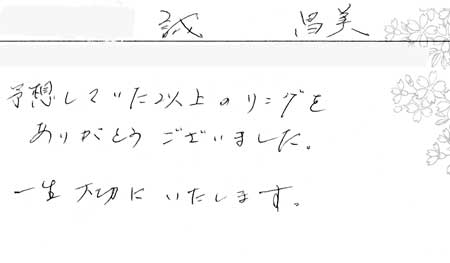 誠 昌美
予想していた以上のリングを
ありがとうございました。
一生大切にいたします。